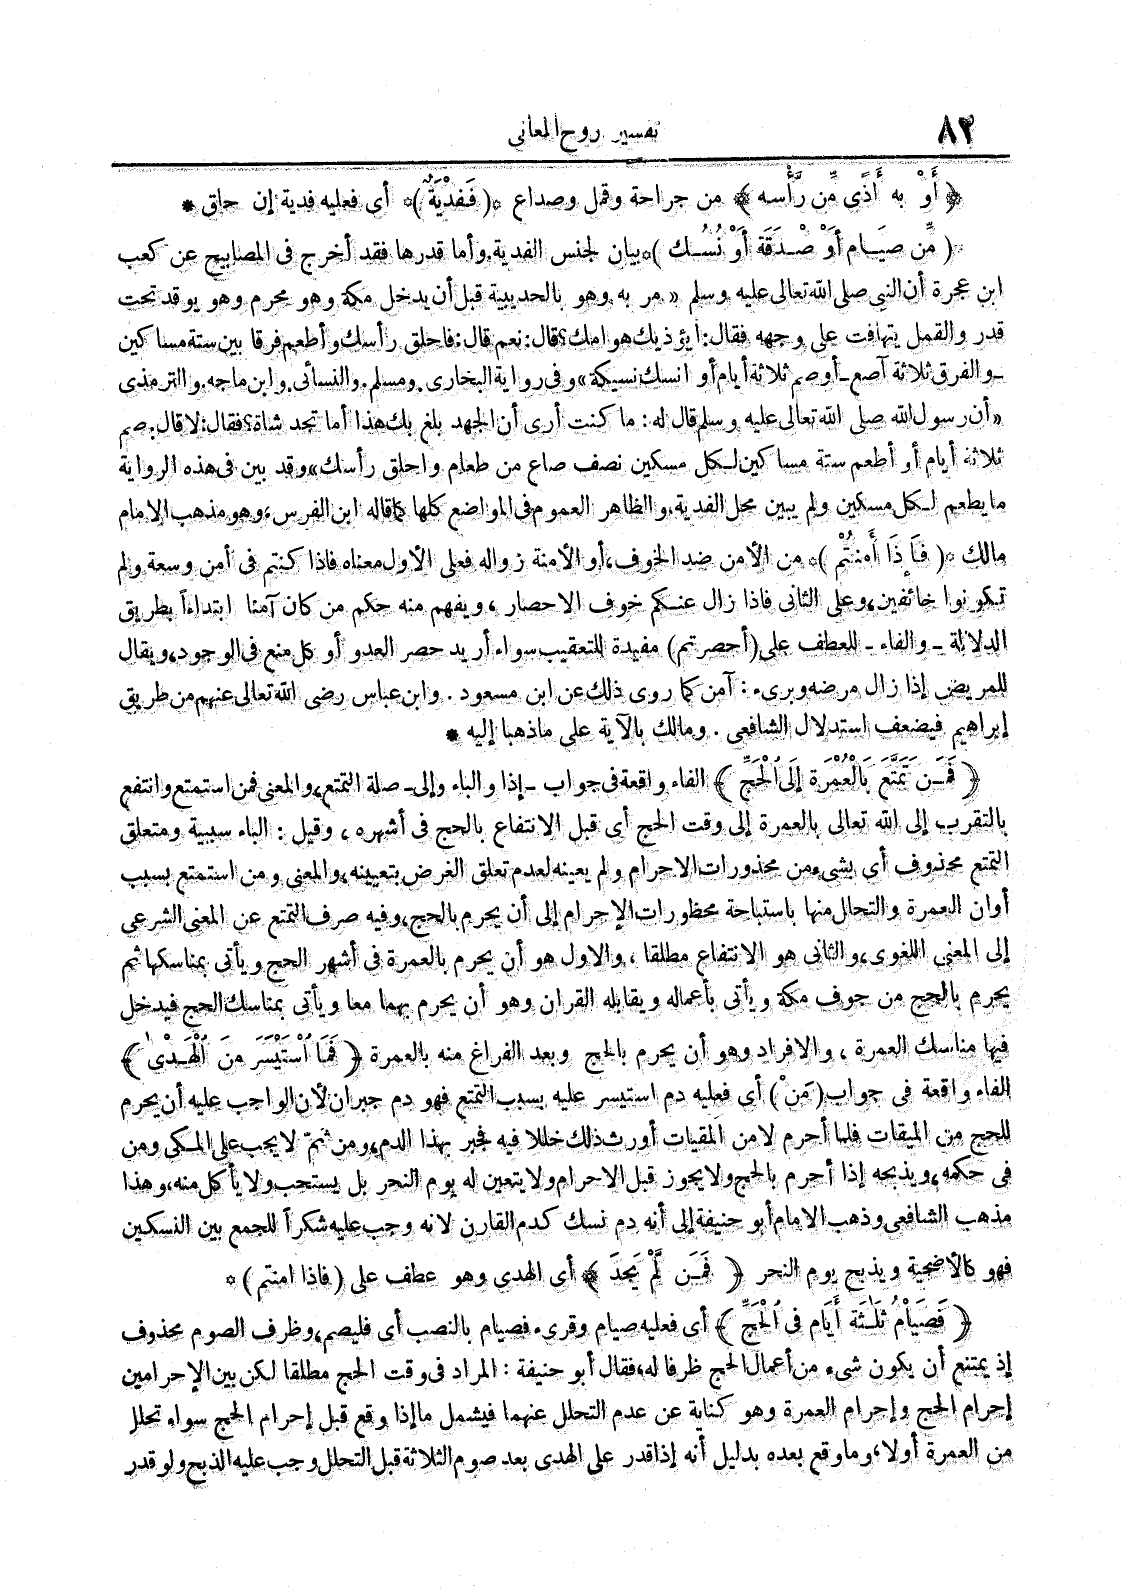 ٨٢
تفسير روح المعانى
﴿ أَوْ به أَذًى مِّن رَّأْسه ﴾ من جراحة وقمل وصداع *( فَفدْيَةٌ )* أى فعليه فدية إن حلق *
*( مِّن صيَـام أَوْ صَـدَقَة أَوْ نُسُـك )* بيان لجنس الفدية. وأما قدرها فقد أخرج فى المصابيح عن كعب
ابن عجرة أن النبى صلى الله تعالى عليه وسلم « مر به وهو بالحديبية قبل أن يدخل مكة وهو محرم وهو يوقد تحت
قدر والقمل يتهافت على وجهه فقال: أيؤذيك هوامك؟ قال: نعم قال: فاحلق رأسك وأطعم فرقا بين ستة مساكين
ـ والفرق ثلاثة آصع ـ أوصم ثلاثة أيام أو انسك نسيكة» وفى رواية البخارى. ومسلم. والنسائى. وابن ماجه. والترمذى
«أن رسول الله صلى الله تعالى عليه وسلم قال له: ما كنت أرى أن الجهد بلغ بك هذا أما تجد شاة؟ فقال: لا قال. صم
ثلاثة أيام أو أطعم ستة مساكين لكل مسكين نصف صاع من طعام واحلق رأسك» وقد بين فى هذه الرواية
ما يطعم لكل مسكين ولم يبين محل الفدية، والظاهر العموم فى المواضع كلها كما قاله ابن الفرس، وهو مذهب الإمام
مالك *( فَإذَا أَمنتُمْ )* من الأمن ضد الخوف، أو الأمنة زواله فعلى الأول معناه فاذا كنتم فى أمن وسعة ولم
تكونوا خائفين، وعلى الثانى فاذا زال عنكم خوف الاحصار ، ويفهم منه حكم من كان آمنا ابتداءاً بطريق
الدلالة ـ والفاء ـ للعطف على (أحصرتم) مفيدة للتعقيب سواء أريد حصر العدو أو كل منع فى الوجود، ويقال
للمريض إذا زال مرضه وبرىء : آمن كما روى ذلك عن ابن مسعود . وابن عباس رضى الله تعالى عنهم من طريق
إبراهيم فيضعف استدلال الشافعى . ومالك بالآية على ما ذهبا إليه *
﴿ فَمَـن تَمَتَّعَ بالْعُمْرَة إلَى الْحَجِّ ﴾ الفاء واقعة فى جواب ـ إذا والباء وإلى ـ صلة التمتع، والمعنى فمن استمتع وانتفع
بالتقرب إلى الله تعالى بالعمرة إلى وقت الحج أى قبل الانتفاع بالحج فى أشهره ، وقيل : الباء سببية ومتعلق
التمتع محذوف أى بشىء من محذورات الاحرام ولم يعينه لعدم تعلق الغرض بتعيينه، والمعنى ومن استمتع بسبب
أوان العمرة والتحلل منها باستباحة محظورات الإحرام إلى أن يحرم بالحج، وفيه صرف التمتع عن المعنى الشرعى
إلى المعنى اللغوى، والثانى هو الانتفاع مطلقا ، والاول هو أن يحرم بالعمرة فى أشهر الحج ويأتى بمناسكها ثم
يحرم بالحج من جوف مكة ويأتى بأعماله ويقابله القران وهو أن يحرم بهما معا ويأتى بمناسك الحج فيدخل
فيها مناسك العمرة ، والافراد وهو أن يحرم بالحج وبعد الفراغ منه بالعمرة ﴿ فَمَا اسْتَيْسَرَ منَ الْهَـدْى ﴾
الفاء واقعة فى جواب (مَنْ) أى فعليه دم استيسر عليه بسبب التمتع فهو دم جبران لأن الواجب عليه أن يحرم
للحج من الميقات فلما أحرم لا من المقيات أورث ذلك خللا فيه فجبر بهذا الدم، ومن ثم لا يجب على المكى ومن
فى حكمه، ويذبحه إذا أحرم بالحج ولا يجوز قبل الاحرام ولا يتعين له يوم النحر بل يستحب ولا يأكل منه، وهذا
مذهب الشافعى وذهب الامام أبو حنيفة إلى أنه دم نسك كدم القارن لانه وجب عليه شكراً للجمع بين النسكين
فهو كالأضحية ويذبح يوم النحر ﴿ فَمَـن لَّمْ يَجدْ ﴾ أى الهدى وهو عطف على (فاذا امنتم) *
﴿ فَصيَامُ ثَلَـثَة أَيَّام فى الْحَجِّ ﴾ أى فعليه صيام وقرىء فصيام بالنصب أى فليصم، وظرف الصوم محذوف
إذ يمتنع أن يكون شىء من أعمال الحج ظرفا له، فقال أبو حنيفة : المراد فى وقت الحج مطلقا لكن بين الإحرامين
إحرام الحج وإحرام العمرة وهو كناية عن عدم التحلل عنهما فيشمل ما إذا وقع قبل إحرام الحج سواء تحلل
من العمرة أولا، وما وقع بعده بدليل أنه إذا قدر على الهدى بعد صوم الثلاثة قبل التحلل وجب عليه الذبح ولو قدر